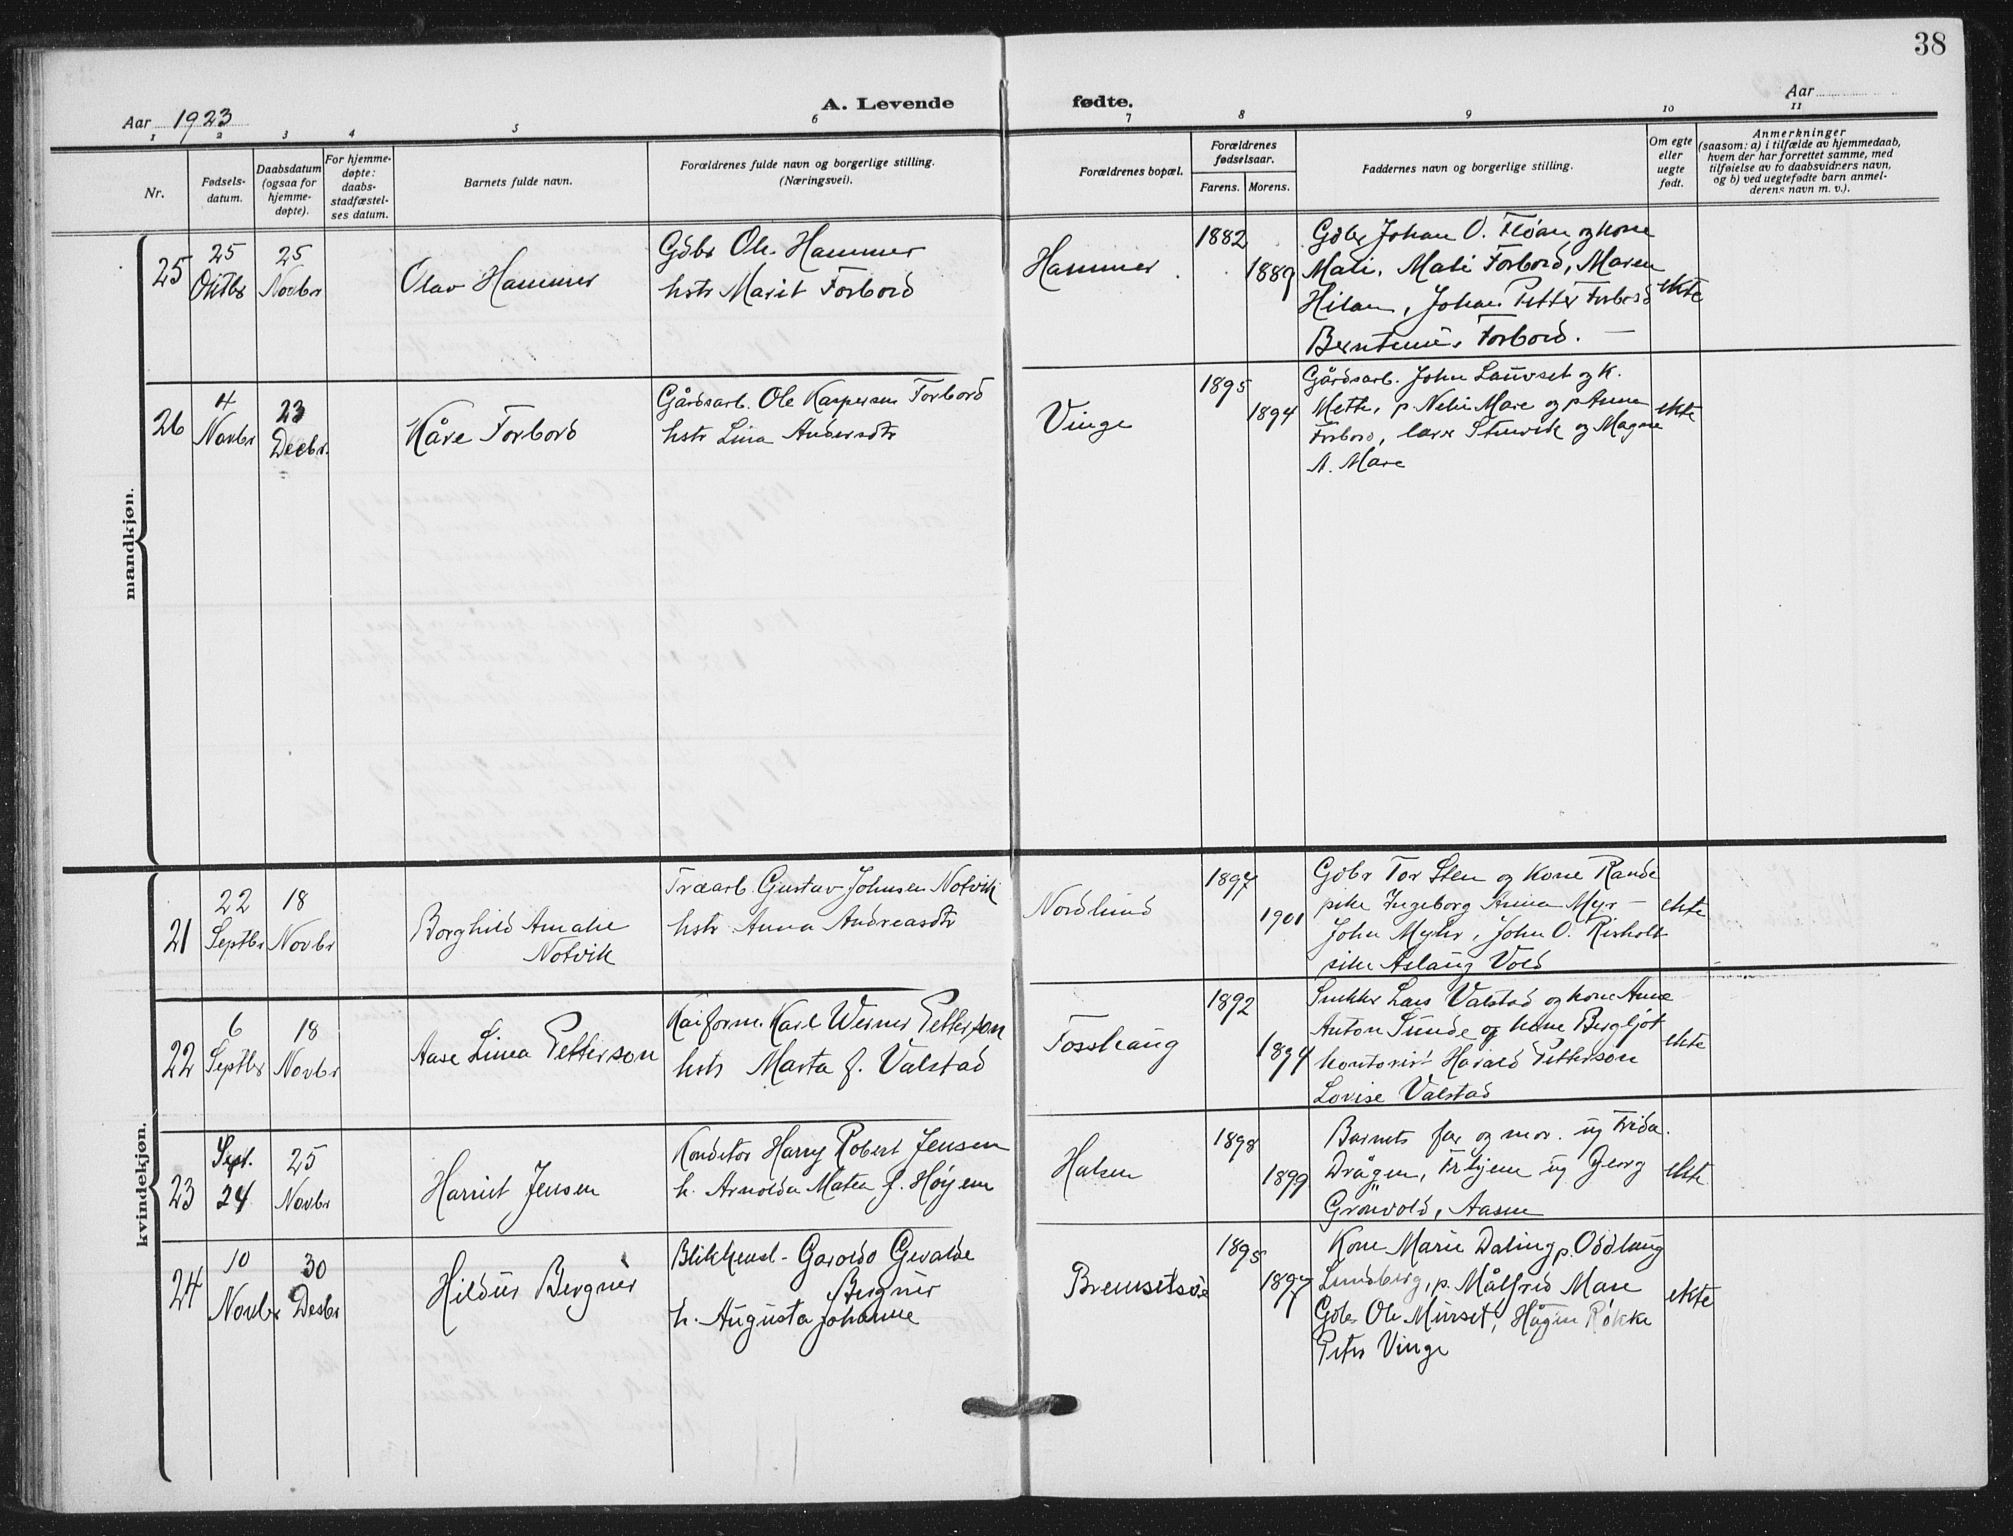 38
Aar 1923
A. Levende fødte.
Aar
1 2 3 4 5 6 7 8 9 10 11
Nr.
Fødsels-
datum.
Daabsdatum
(ogsaa for
hjemme-
døpte).
For hjemme-
døpte:
daabs-
stadfæstel-
ses datum.
Barnets fulde navn.
Forældrenes fulde navn og borgerlige stilling.
(Næringsvei).
Forældrenes bopæl.
Forældrenes
fødselsaar.
Farens. Morens.
Faddernes navn og borgerlige stilling.
Om egte
eller
uegte
født.
Anmerkninger
(saasom: a) i tilfælde av hjemmedaab,
hvem der har forrettet samme, med
tilføielse av to daabsvidners navn,
og b) ved uegtefødte barn anmel-
derens navn m. v.).
mandkjøn.
25
25
Oktbr
25
Novbr
Olav Hammer
Gdbr Ole Hammer
hstr Marit Forbord
Hammer
1882
1889
Gdbr Johan O. Fløan og kone
Mali, Mali Forbord, Maren
Hilan, Johan Petter Forbord
Forbord.
ekte
26
4
Novbr
23
Decbr.
Kåre Forbord
Gårdsarb. Ole Kaspersen Forbord
hstr Lina Andersdtr
Vinge
1895
1894
Gårdsarb. John Lauvset og k.
Mette, p. Mære og p Anna
Forbord, og Magne
A. Mære
ekte
kvindekjøn.
21
22
Septbr
18
Novbr
Borghild Amalie
Notvik
Træarb. Gustav Johnsen Notvik
hstr Anna Andreasdtr
Nordlund
1897
1901
Gdbr Tor Sten og kone Randi
pike Ingeborg Anna Myr
John Myhr, John O. Risholt
pike Aslaug Vold
ekte
22
6
Septbr
18
Novbr
Aase Linea Petterson
Karl Werner Petterson
hstr Marta f. Valstad
Fosshaug
1892
1894
Snekker Lars Valstad og kone Anna
Anton Sunde og kone Bergljot
kontorist Harald Petterson
Lovise Valstad
ekte
23
Sept.
24
25
Novbr
Harriet Jensen
Konditor Harry Robert Jensen
h. Arnolda Matea f. Høyem
Halsen
1898
1899
Barnets far og mor. og Frida
og Georg
Grönvold, Aasen
ekte
24
10
Novbr
30
Desbr
Hildur Bergner
Bergner
h. Augusta Johanne
1895
1897
Kone Marie Daling, p. Oddlaug
Lundberg, p. Målfrid Mære
Gdbr Ole Murset, Hågen Røkke
Peter Vinge
ekte